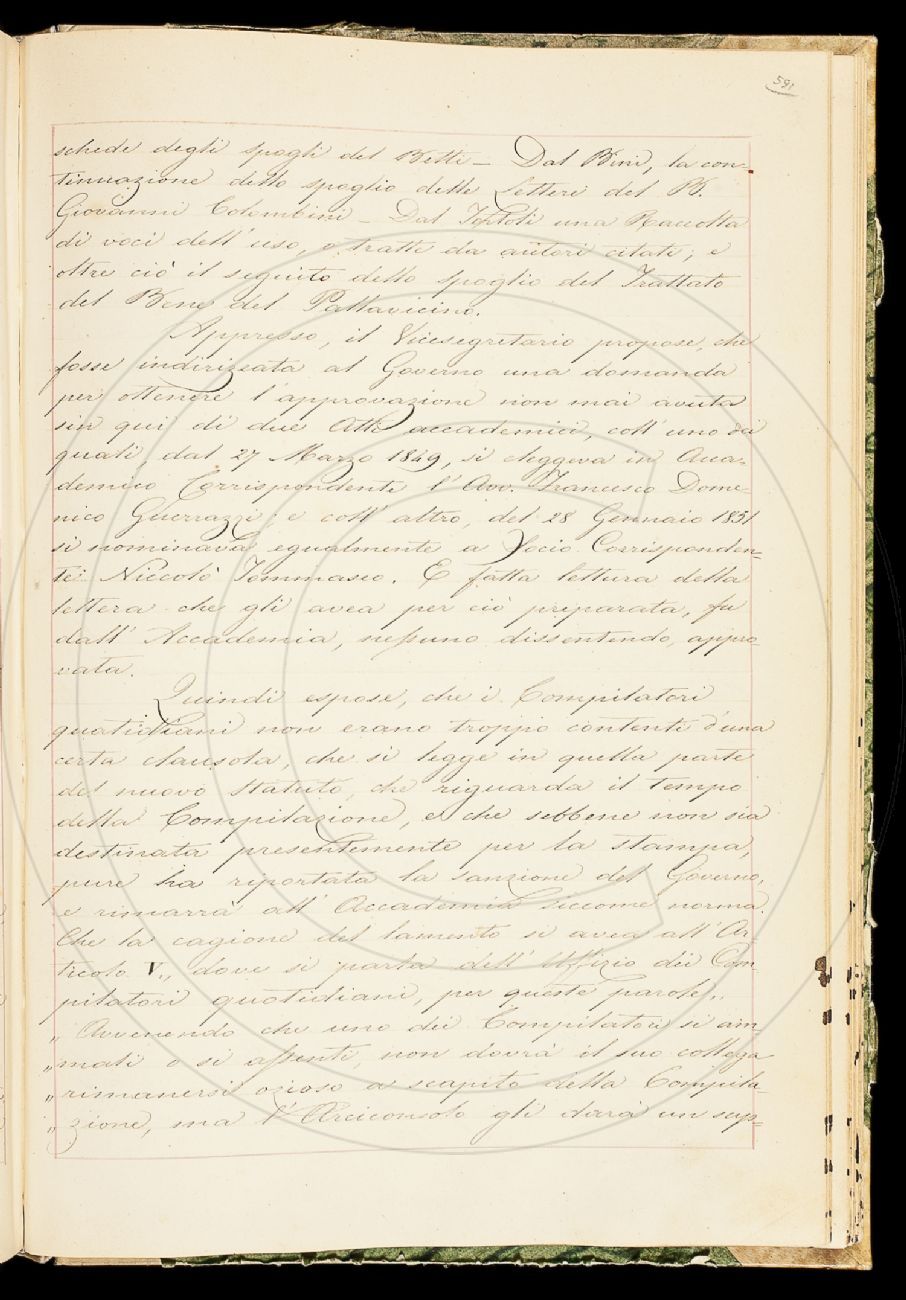 591
schede degli spogli del Betti – Dal Bini, la con-
tinuazione dello spoglio delle Lettere del B.
Giovanni Colombini – Dal Tortoli una Raccolta
di voci dell'uso, o tratte da autori citati; e
oltre ciò il seguito dello spoglio del Trattato
del Bene del Pallavicino.
Appresso, il Vicesegretario propose, che
fosse indirizzata al Governo una domanda
per ottenere l'approvazione non mai avuta
sin qui di due Atti accademici, coll'uno dei
quali, dal 27 Marzo 1849, si eleggeva in Acca-
demico Corrispondente l'Avv. Francesco Dome-
nico Guerrazzi; e coll'altro, del 28 Gennaio 1851
si nominava egualmente a Socio Corrisponden-
te Niccolò Tommaseo. E fatta lettura della
lettera che gli avea per ciò preparata, fu
dall'Accademia, nessuno dissentendo, appro-
vata.
Quindi espose, che i Compilatori
quotidiani non erano troppo contenti d'una
certa clausola, che si legge in quella parte
del nuovo Statuto, che riguarda il tempo
della Compilazione, e che sebbene non sia
destinata presentemente per la stampa,
pure ha riportata la sanzione del Governo,
e rimarrà all'Accademia siccome norma.
Che la cagione del lamento si avea all'Ar-
ticolo V., dove si parla dell'Uffizio dei Com
pilatori quotidiani, per queste parole,,
,, Avvenendo che uno dei Compilatori si am-
,, mali o si assenti, non dovrà il suo collega
,, rimanersi ozioso a scapito della Compila-
,, zione, ma l'Arciconsolo gli darà un sup-